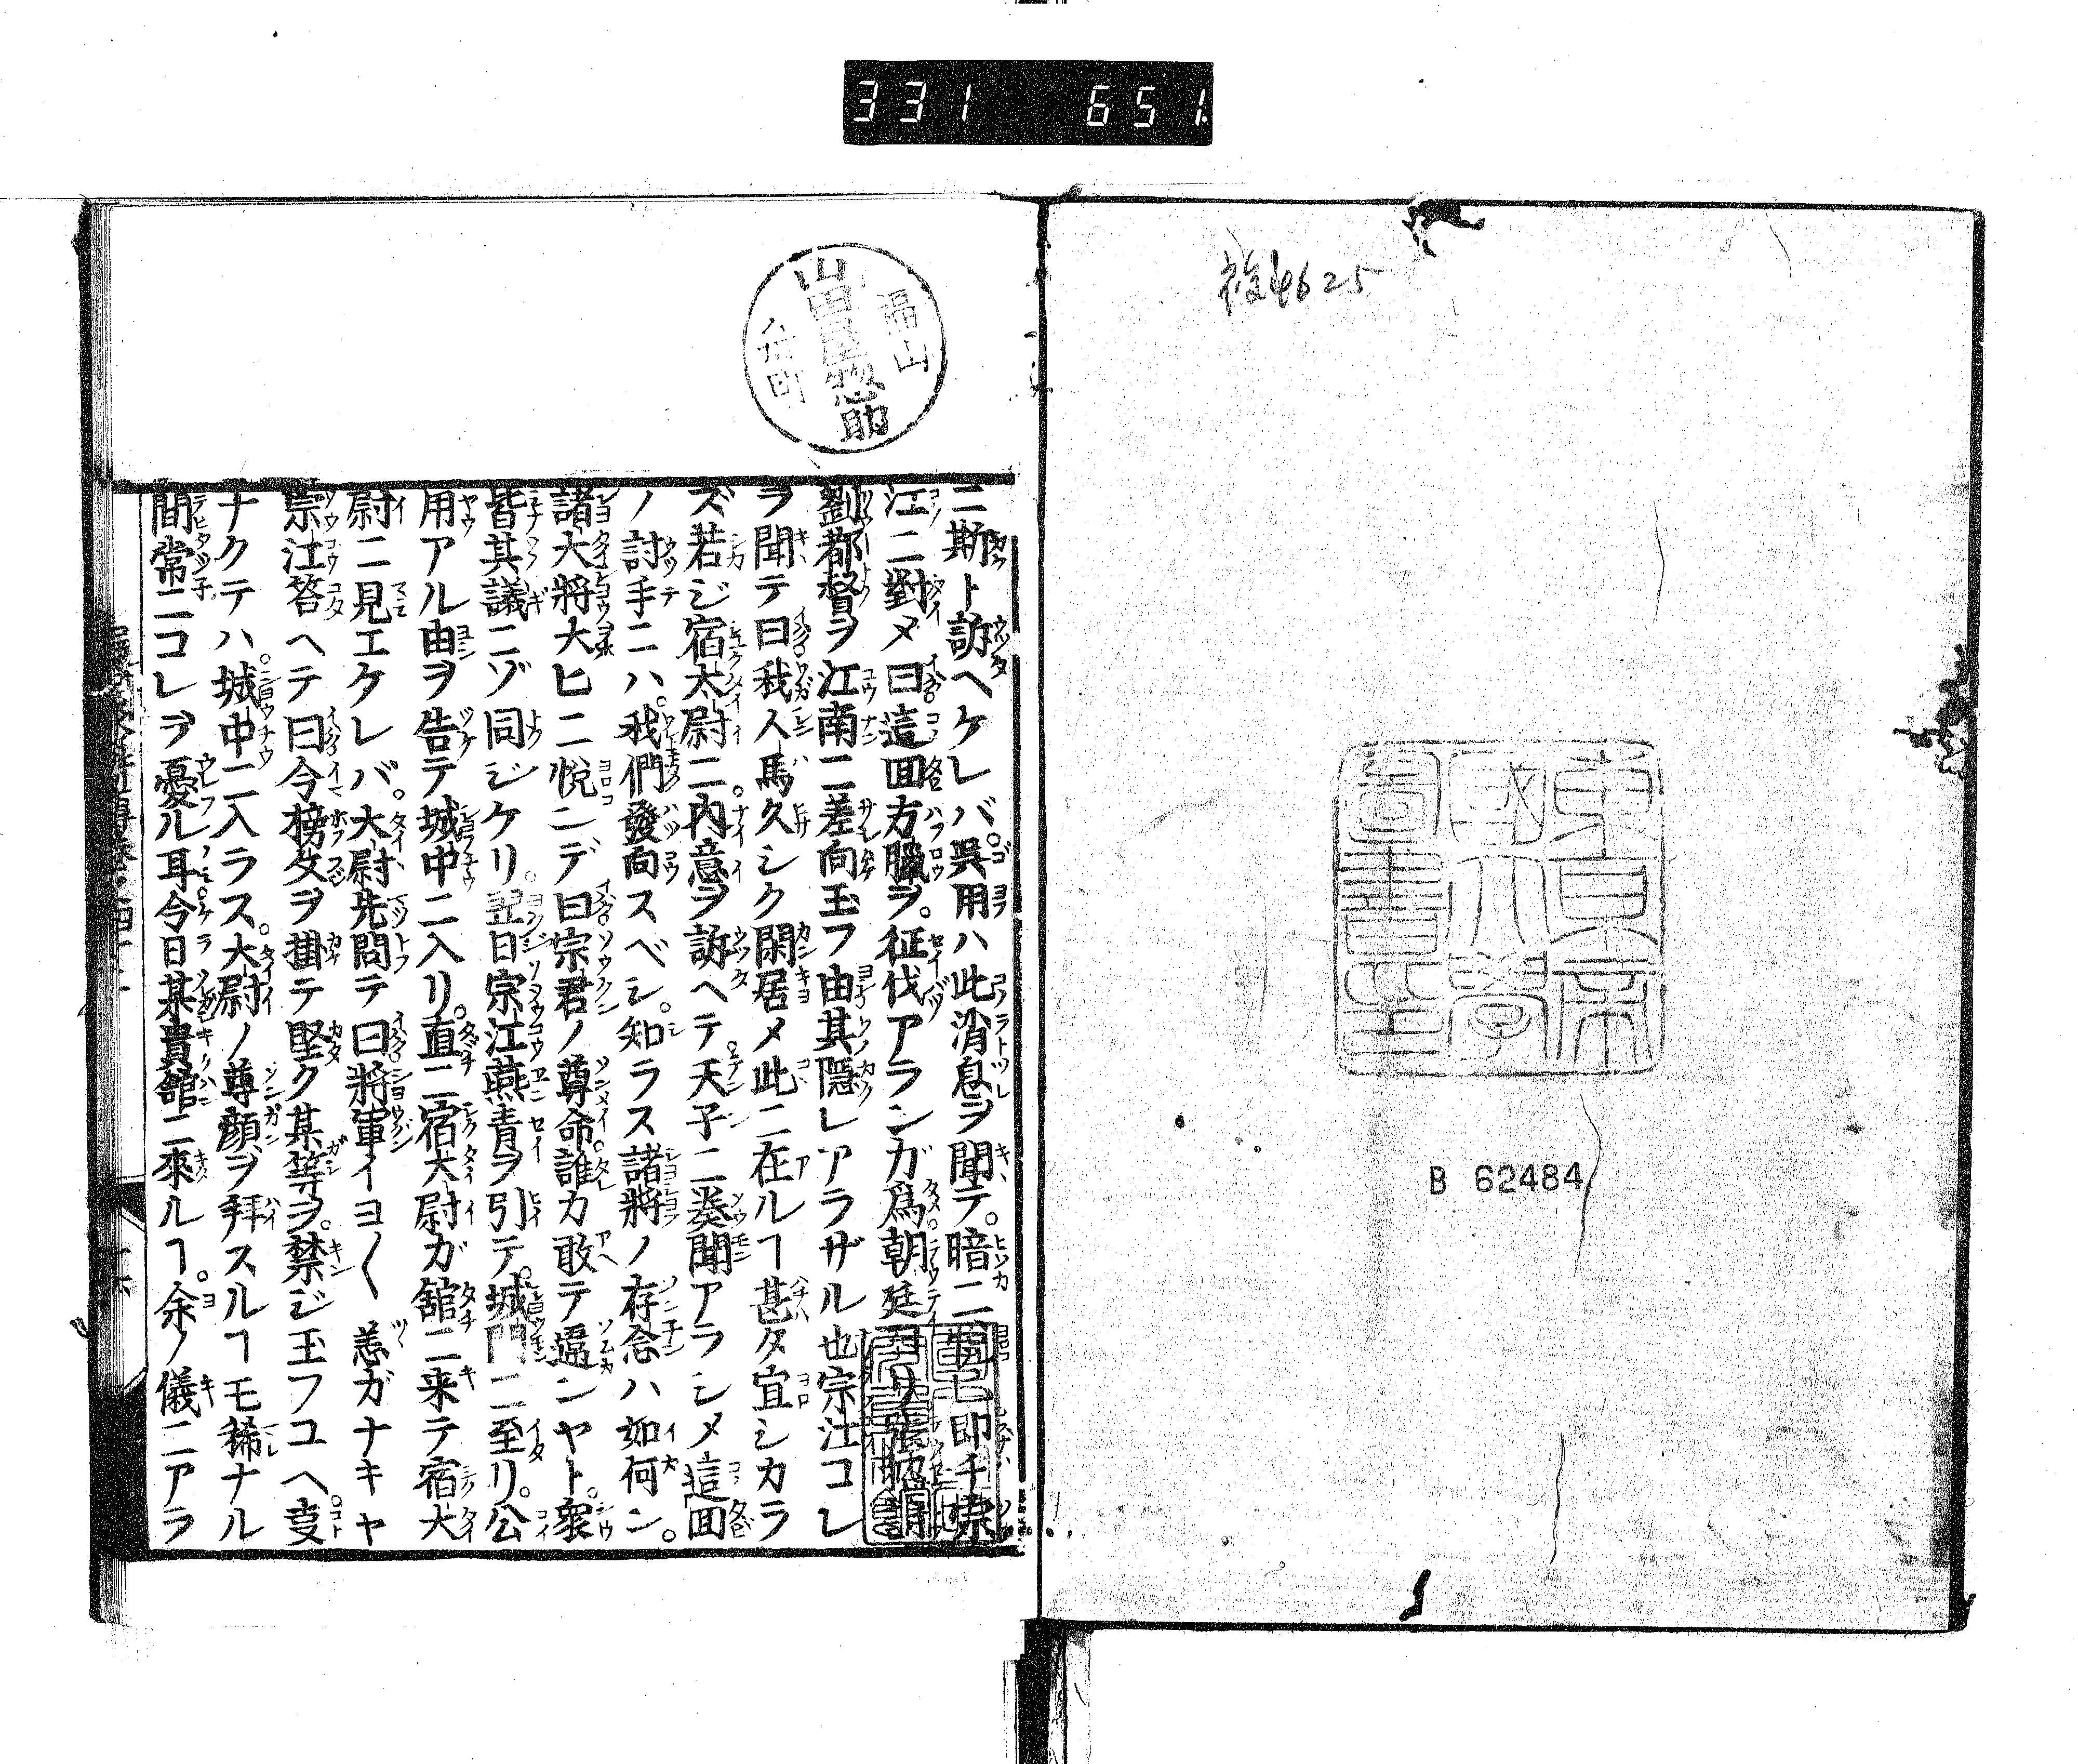 331 651
後4625
東京帝
國大學
圖書印
B 62484
福山
山田屋惣助
町
ニ斯ト訴ヘケレバ。呉用ハ此消息ヲ聞テ。暗ニ即チ宗
江ニ對メ曰這回方臘ヲ。征伐アランガ爲朝廷ヨリ張
劉都督ヲ江南ニ差向玉フ由其隱レアラザル也宗江コレ
ヲ聞テ曰我人馬久シク閑居メ此ニ在ルヿ甚タ宜シカラ
ズ若ジ宿大尉ニ。内意ヲ訴ヘテ。天子ニ奏聞アラシメ這回
ノ討手ニハ。我們發向スベシ。知ラス諸將ノ存念ハ如何ン。
諸大將大ヒニ悅ンデ曰宗君ノ尊命。誰カ敢テ違ンヤト。衆
皆其議ニゾ同ジケリ。翌日宗江燕青ヲ引テ。城門ニ至リ。公
用アル由ヲ告テ城中ニ入リ。直ニ宿大尉ガ舘ニ来テ宿大
尉ニ見エケレバ。大尉先問テ曰將軍イヨ〱恙ガナキヤ
宗江答ヘテ曰今榜文ヲ掛テ堅ク某等ヲ。禁ジ玉フユヘ。叓
ナクテハ。城中ニ入ラス。大尉ノ尊顔ヲ拜スルヿモ稀ナル
間常ニコレヲ憂ル耳今日某貴舘ニ來ルヿ。余ノ儀ニアラ